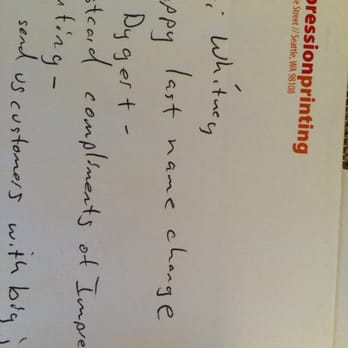 pressionprinting
e Street // Seattle, WA 98108
: Whitney
appy last name change
Dygert -
stcard compliments of Impre
nting -
send us customers with big